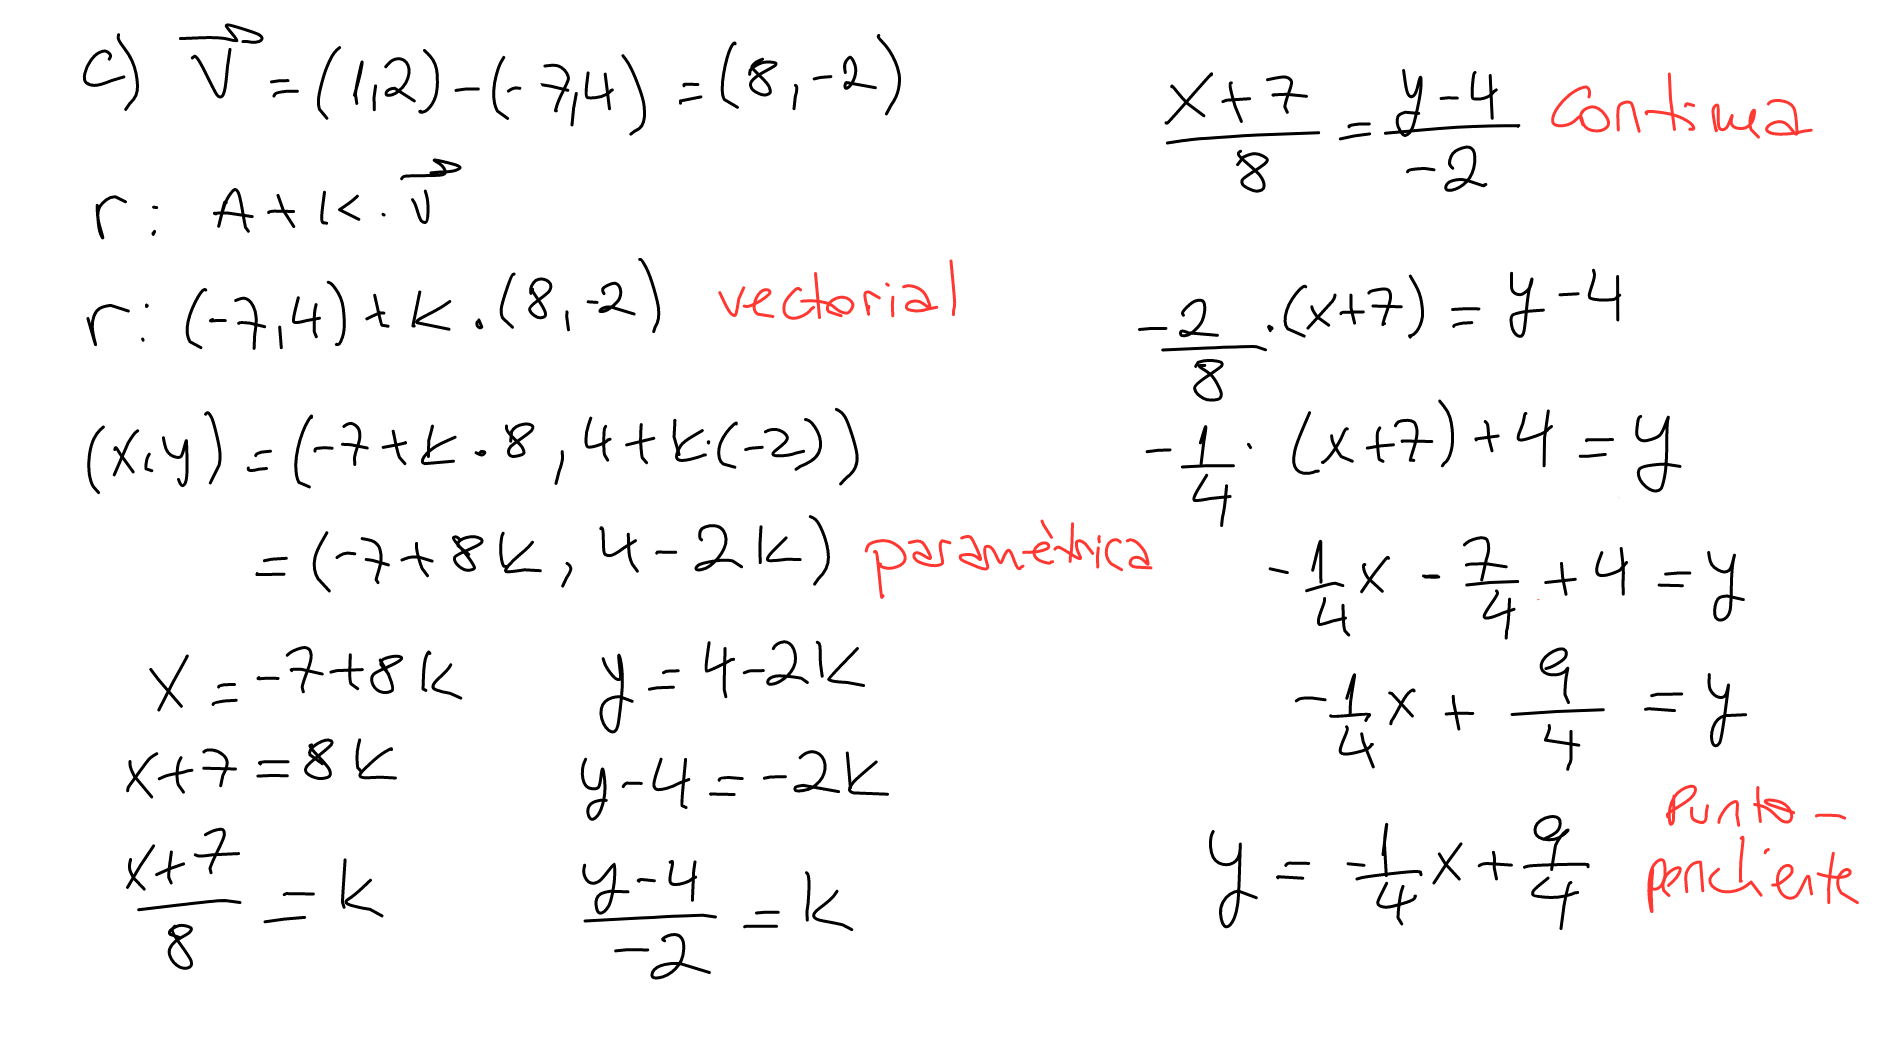 c) V⃗ = (1,2) - (-7,4) = (8,-2)
r: A + K · v⃗
r: (-7,4) + k · (8,-2) vectorial
(x,y) = (-7+k·8, 4+k·(-2))
= (-7+8k, 4-2k) paramètrica
x = -7+8k y = 4-2k
x+7 = 8k y-4 = -2k
(x+7)/8 = k (y-4)/-2 = k
(x+7)/8 = (y-4)/-2 Continua
-2/8 · (x+7) = y-4
-1/4 · (x+7) + 4 = y
-1/4 x - 7/4 + 4 = y
-1/4 x + 9/4 = y
y = -1/4 x + 9/4 Punto-
pendiente